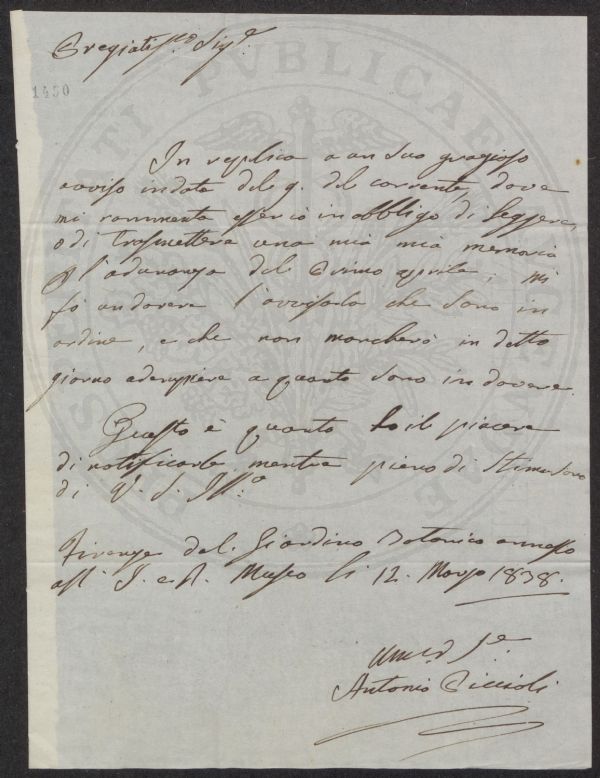 Pregiatis.mo Sig.e
1450
In replica a un suo grazioso
avviso in data del 9. del corrente, dove
mi rammenta esser io in obbligo di leggere,
o di trasmettere una mia mia memoria
l'adunanza del Primo aprile; mi
fò un dovere l'avvisarla che sono in
ordine, e che non mancherò in detto
giorno adempiere a quanto sono in dovere.
Questo è quanto ho il piacere
di notificarle mentre pieno di stima sono
di V. S. Ill.a
Firenze dal Giardino Botanico annesso
all' I. e R. Museo li 12. Marzo 1838.
Antonio Piccioli